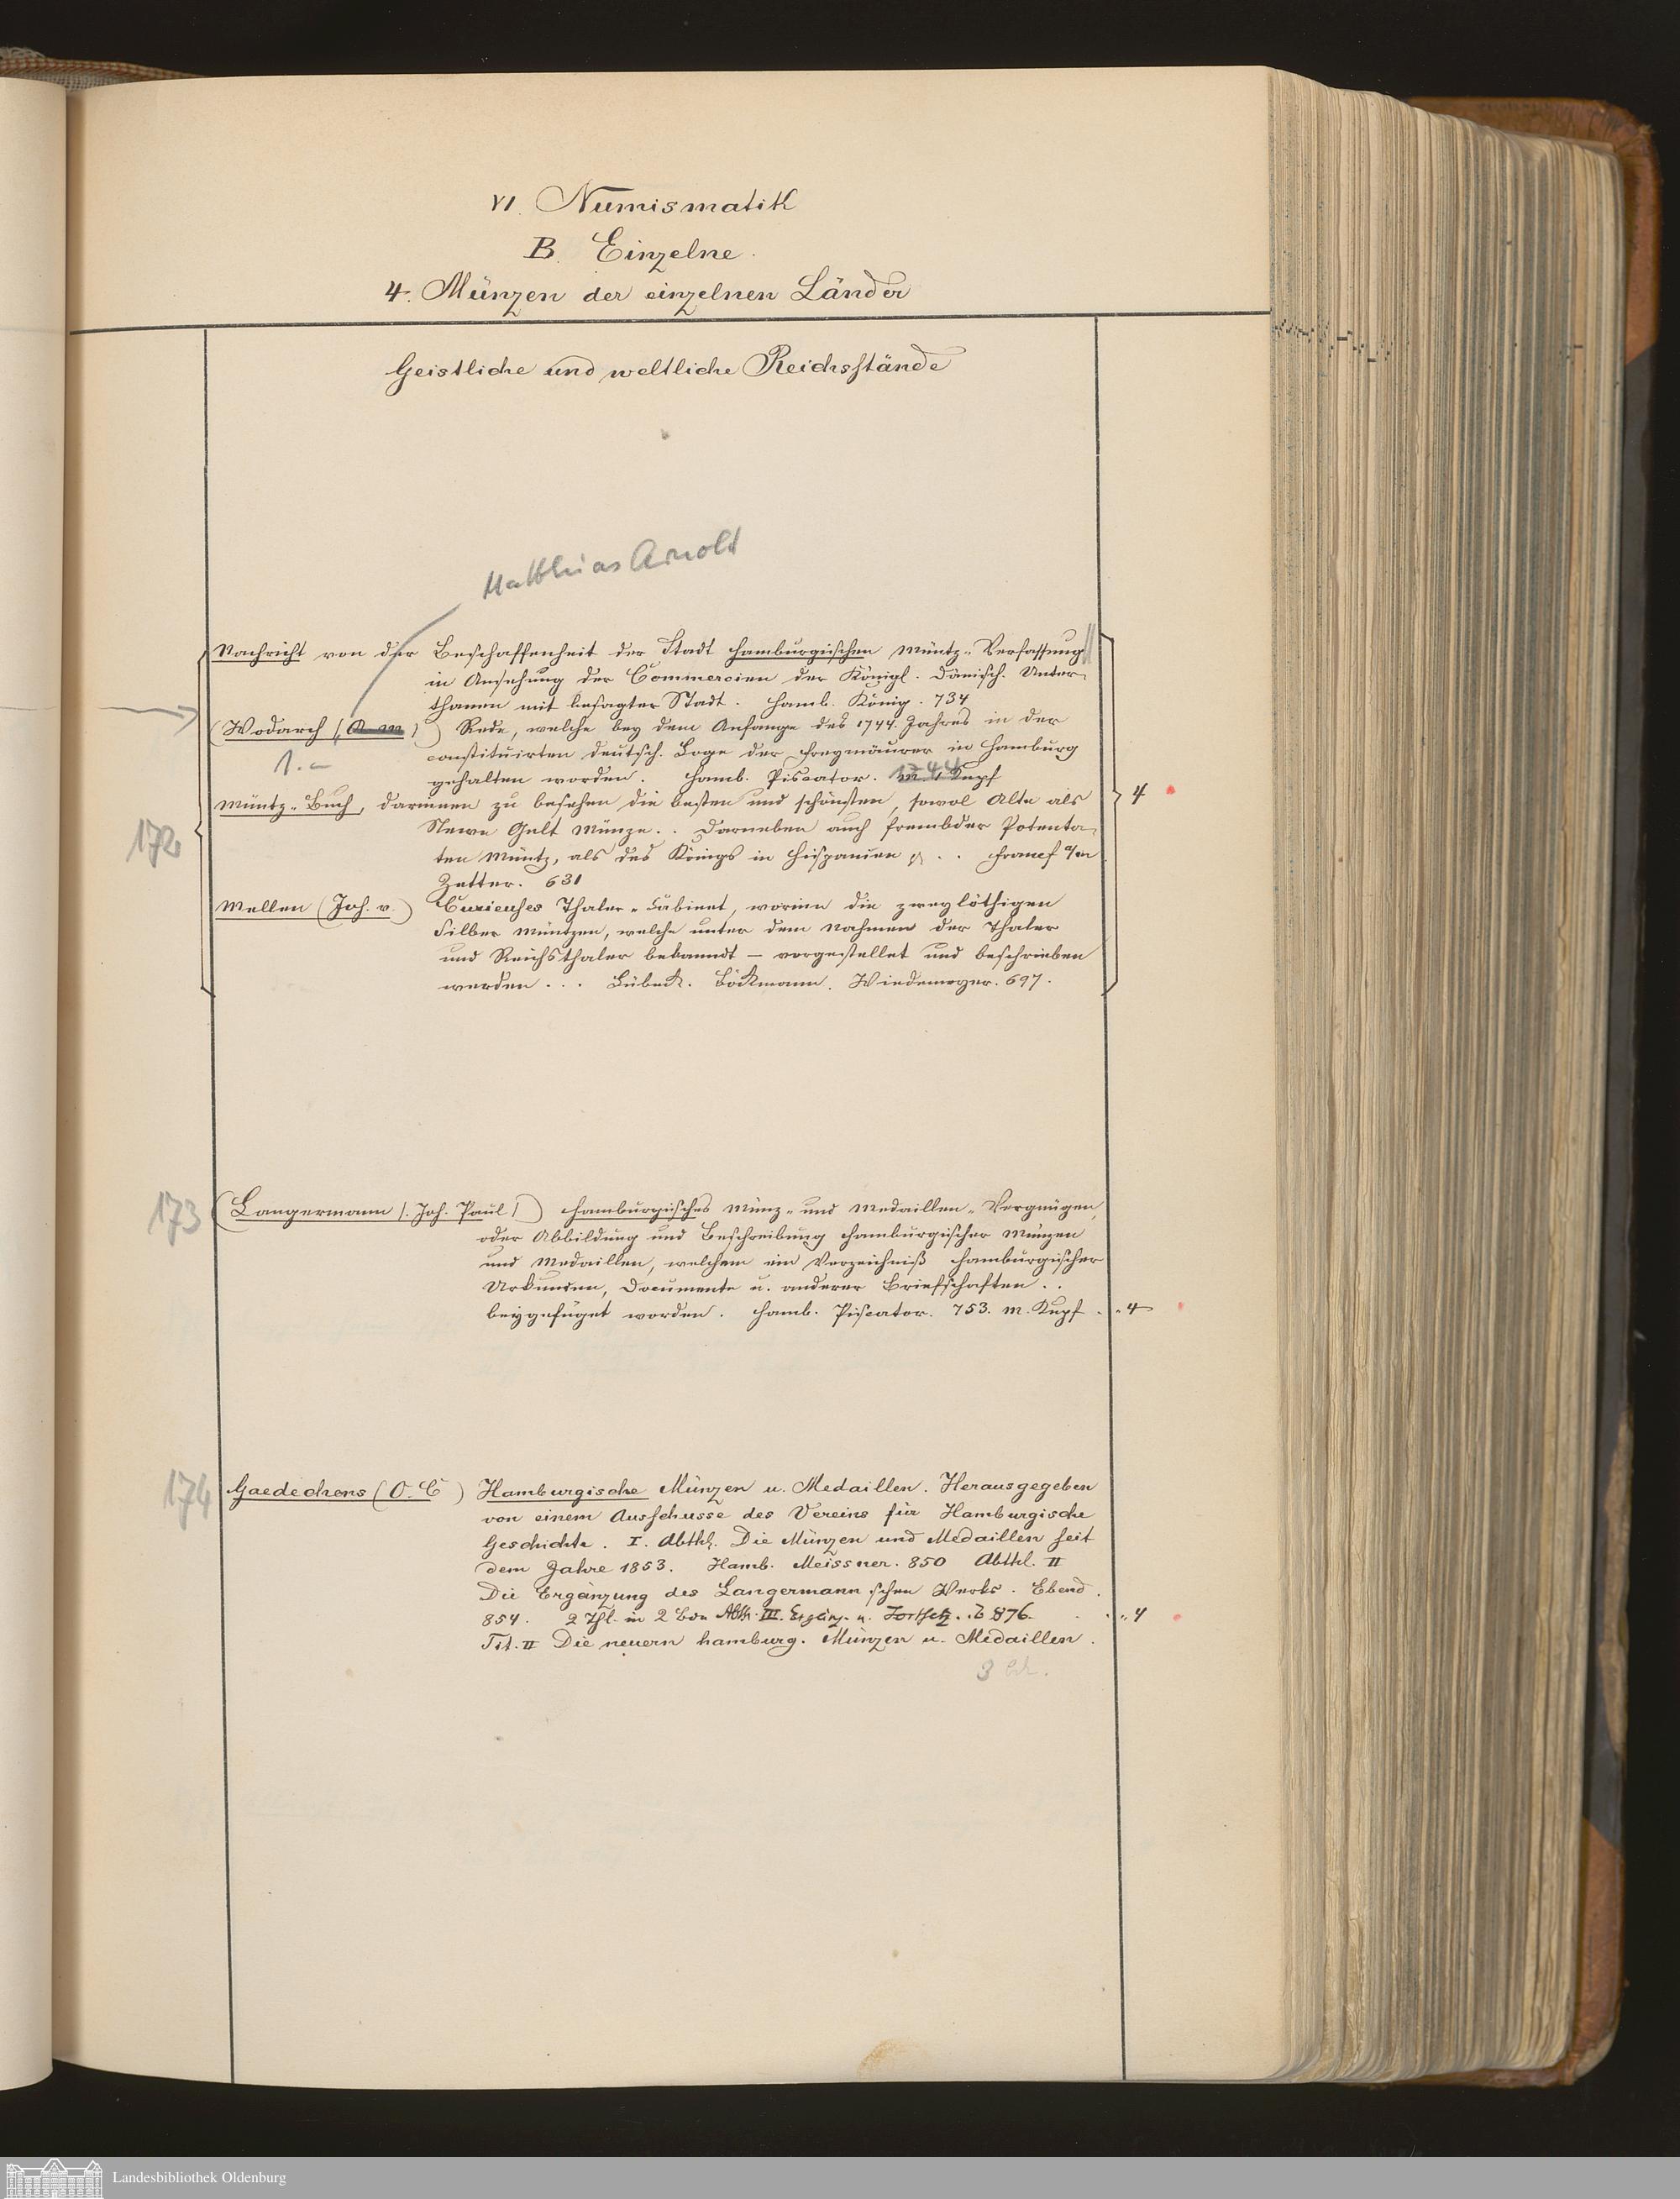 VI. Numismatik
B. Einzelne.
4. Münzen der einzelnen Länder
Geistliche und weltliche Reichsstände
Matthias Arnold
Nachricht von der Beschaffenheit der Stadt Hamburgischen Müntz-Verfassung
in Ansehung der Commercien der Königl. Dänisch. Unter-
thanen mit besagter Stadt. Hamb. König. 734
(Wodarch /. /) Rede, welche bey dem Anfange des 1744. Jahres in der
constituirten deutsch. Loge der Freymäurer in Hamburg
1.-
gehalten worden. Hamb. Piscator. 1744 m. Kupf
Müntz-Buch, darinnen zu besehen die besten und schönsten, sowol Alte als
4
172
Newe Gelt Münze.. Darneben auch frembder Potenta-
ten Müntz, als des Königs in Hispanien . . Francf a/m
Zetter. 631
Mellen (Joh. v.) Curieuses Thaler-Cabinet, worinn die zweylöthigen
Silber Müntzen, welche unter dem Nahmen der Thaler
und Reichsthaler bekanndt – vorgestellet und beschrieben
werden... Lübeck. Böckmann. Wiedemeyer. 697.
173
(Langermann /. Joh. Paul /) Hamburgisches Münz- und Medaillen-Vergnügen,
oder Abbildung und Beschreibung Hamburgischer Münzen
und Medaillen, welchem ein Verzeichniß Hamburgischer
Urkunden, Documente u. anderer Briefschaften ..
beygefüget worden. Hamb. Piscator. 753. m. Kupf . . 4
174
Gaedechens (O. C) Hamburgische Münzen u. Medaillen. Herausgegeben
von einem Ausschusse des Vereins für Hamburgische
Geschichte. I. Abthl. Die Münzen und Medaillen seit
dem Jahre 1853. Hamb. Meissner. 850 Abthl. II
Die Ergänzung des Langermann'schen Werks. Ebend.
854. 2 Thl. in 2 Bdn Abth. III. Ergänz. u. Fortsetz. 876. . . 4
Tit. II Die neuern hamburg. Münzen u. Medaillen.
3 Bd.
Landesbibliothek Oldenburg